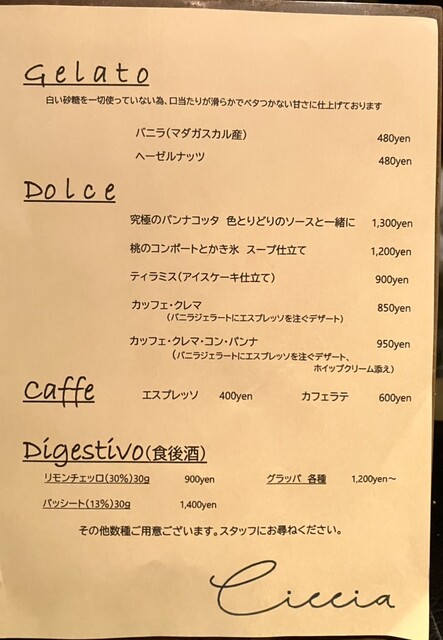 Gelato
白い砂糖を一切使っていない為、口当たりが滑らかでベタつかない甘さに仕上げております
バニラ(マダガスカル産) 480yen
ヘーゼルナッツ 480yen
Dolce
究極のパンナコッタ 色とりどりのソースと一緒に 1,300yen
桃のコンポートとかき氷 スープ仕立て 1,200yen
ティラミス(アイスケーキ仕立て) 900yen
カッフェ・クレマ 850yen
(バニラジェラートにエスプレッソを注ぐデザート)
カッフェ・クレマ・コン・パンナ 950yen
(バニラジェラートにエスプレッソを注ぐデザート、
ホイップクリーム添え)
Caffe エスプレッソ 400yen カフェラテ 600yen
Digestivo(食後酒)
リモンチェッロ(30%)30g 900yen グラッパ 各種 1,200yen~
パッシート(13%)30g 1,400yen
その他数種ご用意ございます。スタッフにお尋ねください。
Ciccia